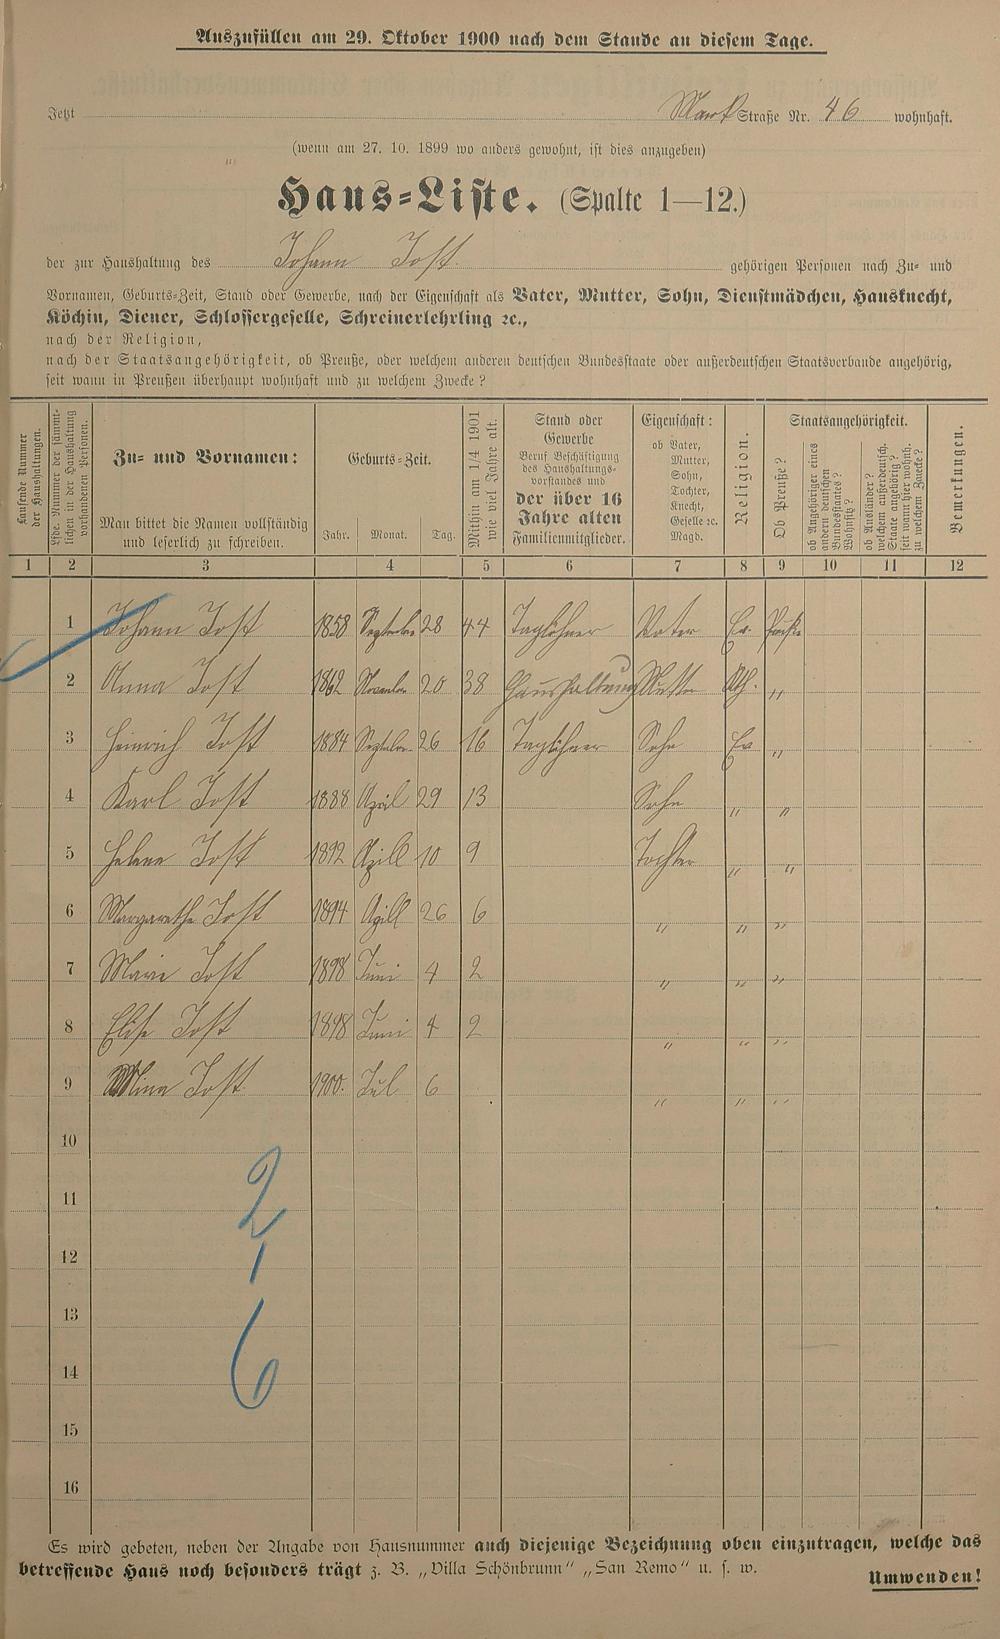 Auszufüllen am 29. Oktober 1900 nach dem Stande an diesem Tage.
Jetzt Markt Straße Nr. 46 wohnhaft.
(wenn am 27. 10. 1899 wo anders gewohnt, ist dies anzugeben)
Haus-Liste. (Spalte 1—12.)
der zur Haushaltung des Johann Jost gehörigen Personen nach Zu- und
Vornamen, Geburts-Zeit, Stand oder Gewerbe, nach der Eigenschaft als Vater, Mutter, Sohn, Dienstmädchen, Hausknecht,
Köchin, Diener, Schlossergeselle, Schreinerlehrling ꝛc.,
nach der Religion,
nach der Staatsangehörigkeit, ob Preuße, oder welchem anderen deutschen Bundesstaate oder außerdeutschen Staatsverbande angehörig,
seit wann in Preußen überhaupt wohnhaft und zu welchem Zwecke?
Laufende Nummer
der Haushaltungen.
Lfde. Nummer der sämmt-
lichen in der Haushaltung
vorhandenen Personen.
Zu- und Vornamen:
Man bittet die Namen vollständig
und leserlich zu schreiben.
Geburts-Zeit.
Jahr. Monat. Tag.
Mithin am 1/4 1901
wie viel Jahre alt.
Stand oder
Gewerbe
Beruf Beschäftigung
des Haushaltungs-
vorstandes und
der über 16
Jahre alten
Familienmitglieder.
Eigenschaft:
ob Vater,
Mutter,
Sohn,
Tochter,
Knecht,
Geselle ꝛc.
Magd.
Religion.
Staatsangehörigkeit.
Ob Preuße?
ob Angehöriger eines
andern deutschen
Bundesstaates?
Wohnsitz?
ob Ausländer?
welchem außerdeutsch.
Staate angehörig?
seit wann hier wohnh.
zu welchem Zwecke?
Bemerkungen.
1 2 3 4 5 6 7 8 9 10 11 12
1 Johann Jost 1858 28 44 Taglöhner Vater Ev.
2 Anna Jost 1862 20 38 Haushaltung Mutter Kth. "
3 Heinrich Jost 1884 26 16 Taglöhner Sohn Ev "
4 Karl Jost 1888 April 29 13 Sohn " "
5 Helene Jost 1892 Aprill 10 9 Tochter " "
6 Margarethe Jost 1894 Aprill 26 6 " " "
7 Marie Jost 1898 Juni 4 2 " " "
8 Elise Jost 1898 Juni 4 2 " " "
9 Mina Jost 1900. Jul 6 " " "
10
11
2
12
1
13
14
6
15
16
Es wird gebeten, neben der Angabe von Hausnummer auch diejenige Bezeichnung oben einzutragen, welche das
betreffende Haus noch besonders trägt z. B. „Villa Schönbrunn" „San Remo" u. s. w.
Umwenden!